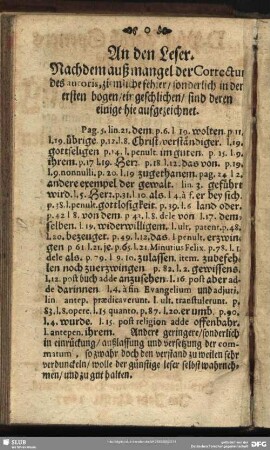 An den Leser.
Nachdem auß mangel der Correctur
des autoris, zimliche fehler / sonderlich in der
ersten bogen / eingeschlichen / sind deren
einige hie auffgezeichnet.
Pag. 5. lin. 21. dem. p. 6. l. 19. wolten. p. 11.
l. 19. übrige. p. 12. l. 8. Christ. verständiger. l. 19.
gottseligen p. 14. l. penult. im guten. p. 15. l. 9.
ihrem. p. 17. l. 19. Herz. p. 18. l. 12. das von. p. 19.
l. 9. nonnulli. p. 20. l. 19. zugethanem. pag. 24. l. 2.
andere exempel der gewalt. lin. 3. geführt
wird. l. 5. Herz. p. 31. l. 10. als. l. 4. à f. er bey sich.
p. 58. l. penult. gottlosigkeit. p. 59. l. 6. land oder.
p. 62. l. 8. von dem. p. 41. l. 8. dele von. l. 17. dem
selben. l. 19. widerwilligem. l. ult. patent. p. 48.
l. 20. bezeuget. p. 49. l. 12. das. l. penult. erzwun
gen. p. 61. l. 21. je. p. 65. l. 21. Minutius Felix. p. 78. l. 1.
dele als. p. 79. l. 9. 10. zulassen. item. zubefeh
len noch zuerzwingen. p. 82. l. 2. gewissens.
l. 12. post buch adde anzusehen. l. 16. post aber ad
de darinnen. l. 4. à fin Evangelium und adjuti.
lin. antep. prædicaverunt. l. ult. traestulerunt. p.
83. l. 8. opere. l. 15. quanto. p. 87. l. 20. er umb. p. 90.
l. 4. wurde. l. 15. post religion adde offenbahr.
l. antepen. ihrem. Andere geringere / sonderlich
in einrückung / außlassung und versetzung der com-
matum, so zwahr doch den verstand zu weilen sehr
verdunckeln / wolle der günstige leser selbst wahrneh-
men / und zu gut halten.
SLUB